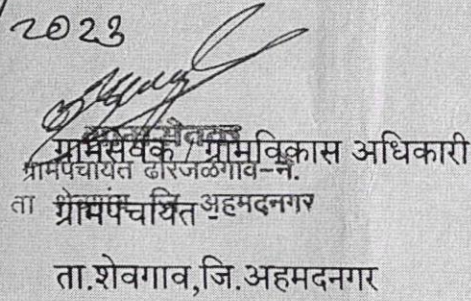 2023
ग्रामसेवक / ग्रामविकास अधिकारी
ग्रामपंचायत ढोरजळगाव-ने.
ता शेवगाव जि अहमदनगर
ग्रामपंचायत -
ता.शेवगाव,जि.अहमदनगर